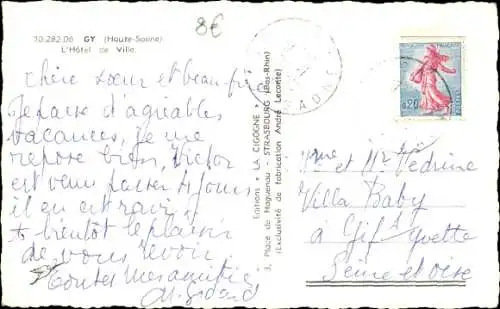 70.282.06 GY (Haute-Saône)
L'Hôtel de Ville.
8€
Chère sœur et beau frère
Je passe d'agréables
vacances, je me
repose bien, Victor
est venu passer 4 jours
il en est ravi,
à bientôt le plaisir
de vous revoir
Toutes mes amitiés
M. Gidard
Editions "LA CIGOGNE"
3, Place de Haguenau - STRASBOURG (Bas-Rhin)
(Exclusivité de fabrication André Leconte)
REPUBLIQUE FRANÇAISE
0,20
POSTES
Mme et Mr Vedrine
Villa Baby
à Gif s/ Yvette
Seine et oise